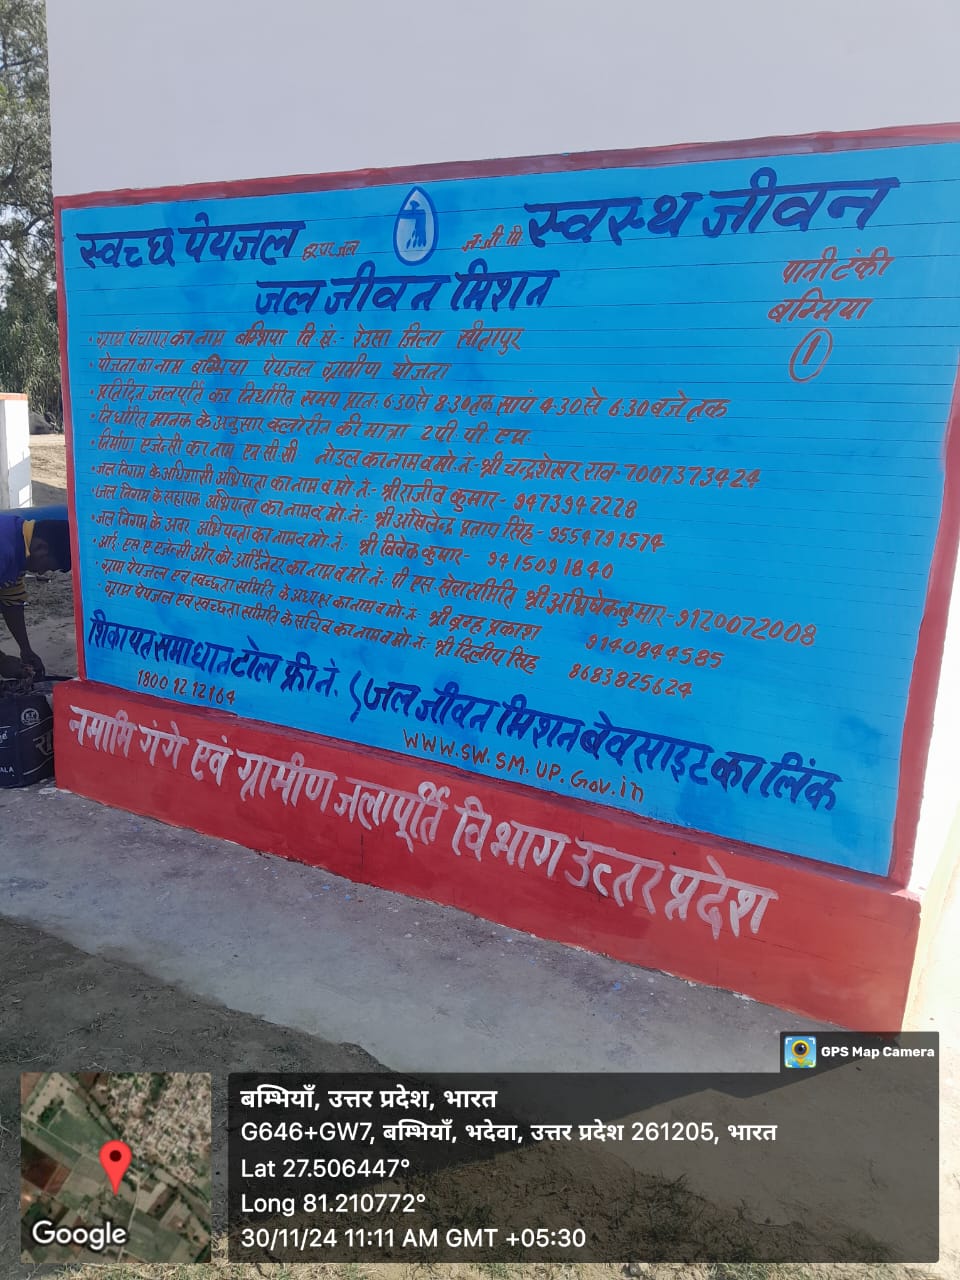 स्वच्छ पेयजल हर घर जल ज.जी.मि स्वस्थ जीवन
जल जीवन मिशन
पानी टंकी
बम्भिया
1
• ग्राम पंचायत का नाम बम्भिया वि.खं:- रेउसा जिला सीतापुर
• योजना का नाम बम्भिया पेयजल ग्रामीण योजना
• प्रतिदिन जलपूर्ति का निर्धारित समय प्रातः 6:30 से 8:30 तक सायं 4:30 से 6:30 बजे तक
• निर्धारित मानक के अनुसार क्लोरीन की मात्रा 2 पी. पी. एम.
• निर्माण एजेन्सी का नाम एन.सी.सी नोडल का नाम व मो.नं:- श्री चन्द्रशेखर राव- 7007373424
• जल निगम के अधिशासी अभियन्ता का नाम व मो.नं:- श्री राजीव कुमार- 9473942228
• जल निगम के सहायक अभियन्ता का नाम व मो.नं:- श्री अखिलेन्द्र प्रताप सिंह- 9554791574
• जल निगम के अवर अभियन्ता का नाम व मो.नं:- श्री विवेक कुमार- 9415091840
• आई. एस. ए एजेन्सी और को आर्डिनेटर का नाम व मो.नं: पी एस सेवा समिति श्री अभिषेक कुमार- 9120072008
• ग्राम पेयजल एवं स्वच्छता समिति के अध्यक्ष का नाम व मो.नं:- श्री ब्रम्ह प्रकाश 9140844585
• ग्राम पेयजल एवं स्वच्छता समिति के सचिव का नाम व मो.नं:- श्री दिलीप सिंह 8683825624
शिकायत समाधान टोल फ्री नं. जल जीवन मिशन बेवसाइट का लिंक
1800 12 12164
WWW.SW.SM.UP.Gov.in
नमामि गंगे एवं ग्रामीण जलापूर्ति विभाग उत्तर प्रदेश
GPS Map Camera
बम्भियाँ, उत्तर प्रदेश, भारत
G646+GW7, बम्भियाँ, भदेवा, उत्तर प्रदेश 261205, भारत
Lat 27.506447°
Long 81.210772°
30/11/24 11:11 AM GMT +05:30
Google